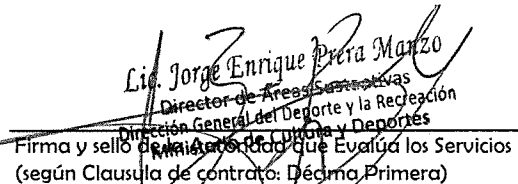 Lic. Jorge Enrique Prera Manzo
Director de Areas Sustantivas
Dirección General del Deporte y la Recreación
Ministerio de Cultura y Deportes
Firma y sello de la Autoridad que Evalúa los Servicios
(según Clausula de contrato: Décima Primera)